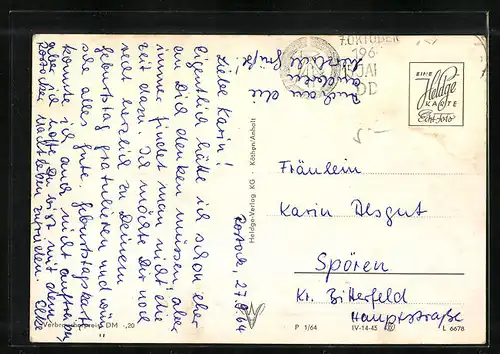 Rostock, 27.9.64
Liebe Karin!
Eigentlich hätte ich schon eher
an Dich denken müssen, aber
immer findet man nicht die
Zeit dazu. Ich möchte Dir noch
recht herzlich zu Deinem
Geburtstag gratulieren und wünsche
alles gute. Geburtstagskarte
konnte ich auch nicht auftreiben
aber ich hoffe Du bist mit dem
Rostocker Stadtleben zufrieden. Elke
Auch an die
anderen
herzliche Grüße!
7.OKTOBER
196
15 JAHRE
DDR
EINE
Heldge
KARTE
Echt-Foto
Fräulein
Karin Alsgut
Spören
Kr. Bitterfeld
Hauptstraße
Heldge-Verlag KG · Köthen/Anhalt
Verbraucherpreis DM -,20
P 1/64
IV-14-45
L 6678